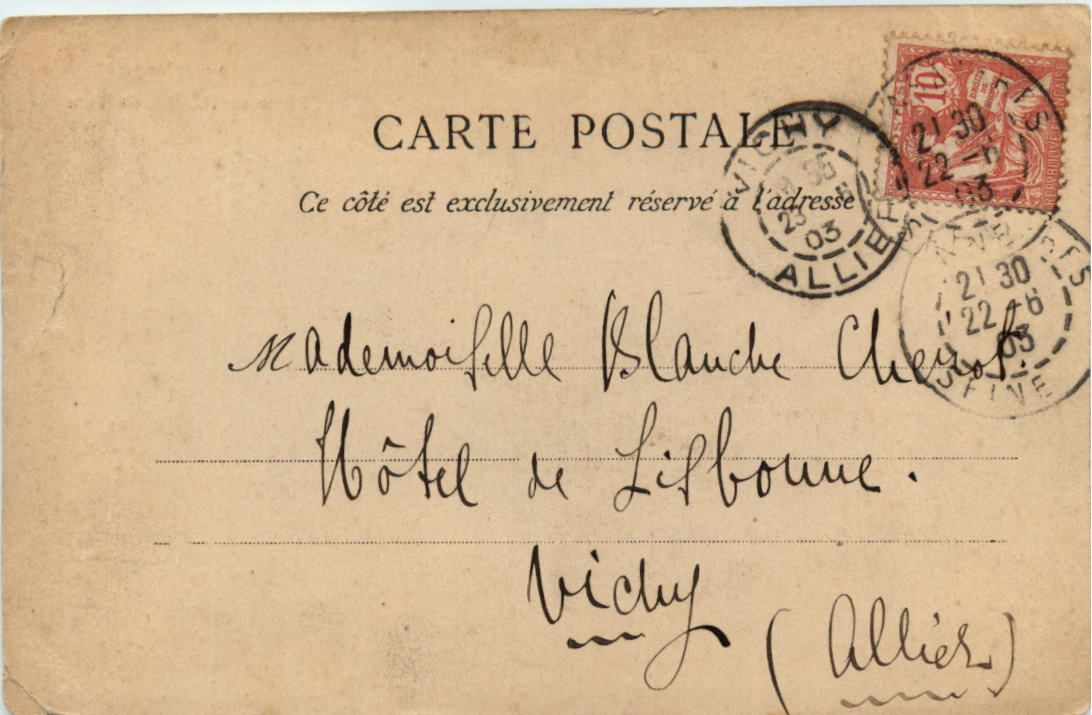 CARTE POSTALE
Ce côté est exclusivement réservé à l'adresse
10
VICHY
23 -6
03
ALLIER
21 30
22 -6
03
21 30
22 -6
03
SEINE
Mademoiselle Blanche
Hôtel de Lisbonne.
Vichy
(Allier)